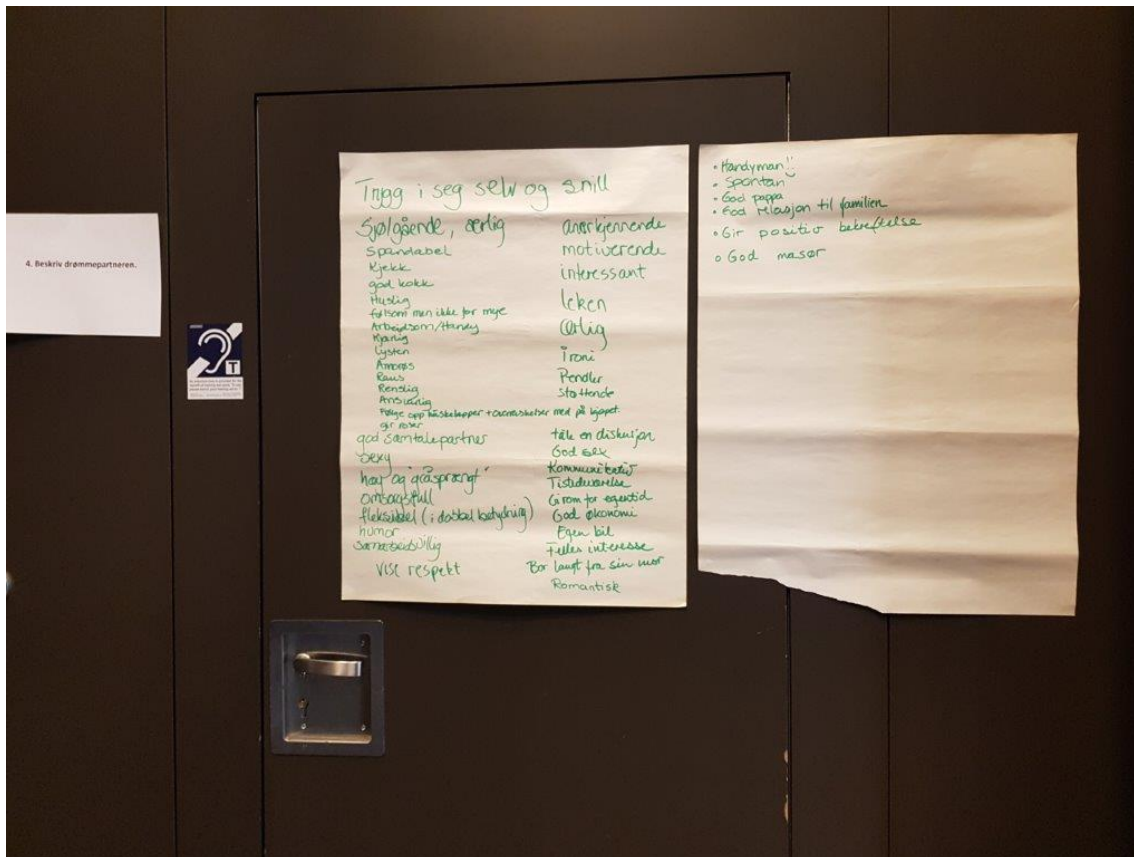 4. Beskriv drømmepartneren.
T
Trygg i seg selv og snill
Sjølgående, ærlig
Spandabel
Kjekk
god kokk
Huslig
følsom men ikke for mye
Arbeidsom/Handy
Kjærlig
Lysten
Amorøs
Raus
Renslig
Ansvarlig
Følge opp huskelapper + overraskelser med på kjøpet.
gir roser
god samtalepartner
sexy
høy og "gråsprengt"
omsorgsfull
fleksibel (i dobbel betydning)
humor
samarbeidsvillig
Vise respekt
anerkjennende
motiverende
interessant
leken
ærlig
Ironi
Pendler
Støttende
tåle en diskusjon
God sex
Kommunikativ
Tilstedeværelse
Gi rom for egentid
God økonomi
Egen bil
Felles interesse
Bor langt fra sin mor
Romantisk
• Handyman!!
• Spontan
• God pappa
• God relasjon til familien
• Gir positiv bekreftelse
• God masør